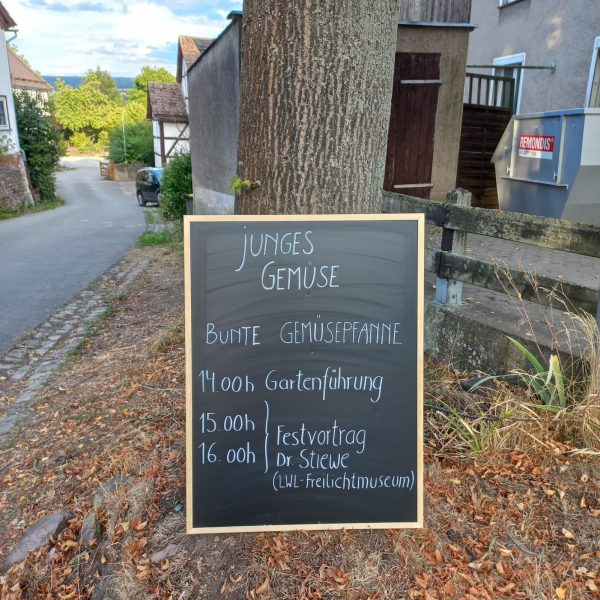 JUNGES
GEMÜSE
BUNTE GEMÜSEPFANNE
14.00h Gartenführung
15.00h
16.00h
Festvortrag
Dr. Stiewe
(LWL-Freilichtmuseum)
REMONDIS